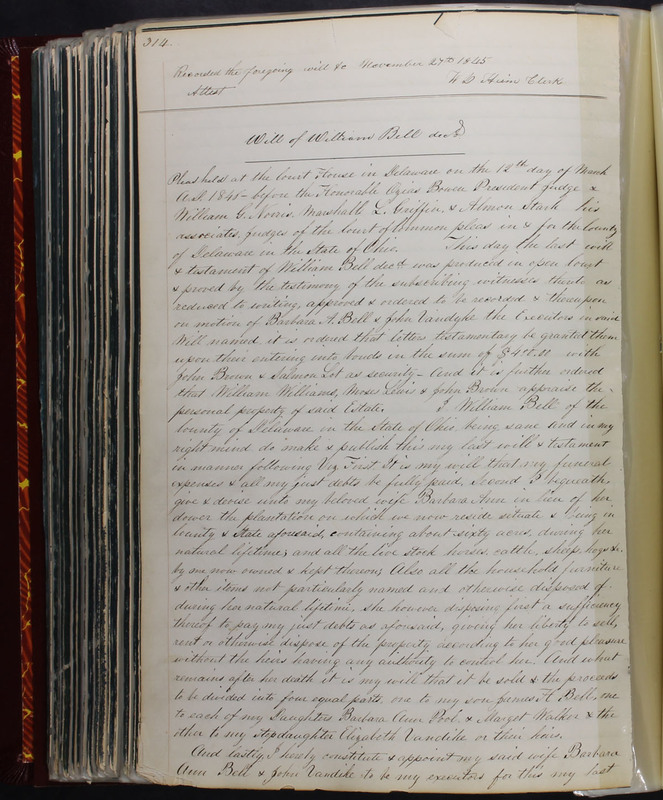 314.
Recorded the foregoing will &c November 27th 1845
Attest
Clerk
Will of William Bell decd
Pleas held at the Court House in Delaware on the 12th day of March
A.D. 1845 – before the Honorable Ozias Bowen President Judge &
William G. Norris, Marshall L. Griffin & Almon Stark his
associates, judges of the Court of Common pleas in & for the County
of Delaware in the State of Ohio. This day the last will
& testament of William Bell decd was produced in open Court
& proved by the testimony of the subscribing witnesses thereto as
reduced to writing, approved & ordered to be recorded & thereupon
on motion of Barbara A. Bell & John Vandyke the Executors in said
Will named it is ordered that letters testamentary be granted them
upon their entering into bonds in the sum of with
John Brown & Salmon Lot as security – And it is further ordered
that William Williams, Moses Lewis & John Brown appraise the
personal property of said Estate. I William Bell of the
County of Delaware in the State of Ohio being sane and in my
right mind do make & publish this my last will & testament
in manner following Viz. First It is my will that my funeral
expenses & all my just debts be fully paid, Second I bequeath
give & devise unto my beloved wife Barbara Ann in lieu of her
dower the plantation on which we now reside situate & being in
County & State aforesaid, containing about sixty acres, during her
natural lifetime; and all the live stock horses, cattle, sheep, hogs &c.
by me now owned & kept thereon; Also all the household furniture
& other items not particularly named and otherwise disposed of
during her natural lifetime, she however disposing first a sufficiency
thereof to pay my just debts as aforesaid, giving her liberty to sell,
rent or otherwise dispose of the property according to her good pleasure
without the heirs having any authority to control her. And what
remains after her death it is my will that it be sold & the proceeds
to be divided into four equal parts, one to my son James H. Bell, one
to each of my Daughters Barbara Ann Pool & Marget Walker & the
other to my stepdaughter Elizabeth Vandike or their heirs.
And lastly, I hereby constitute & appoint my said wife Barbara
Ann Bell & John Vandike to be my executors for this my last